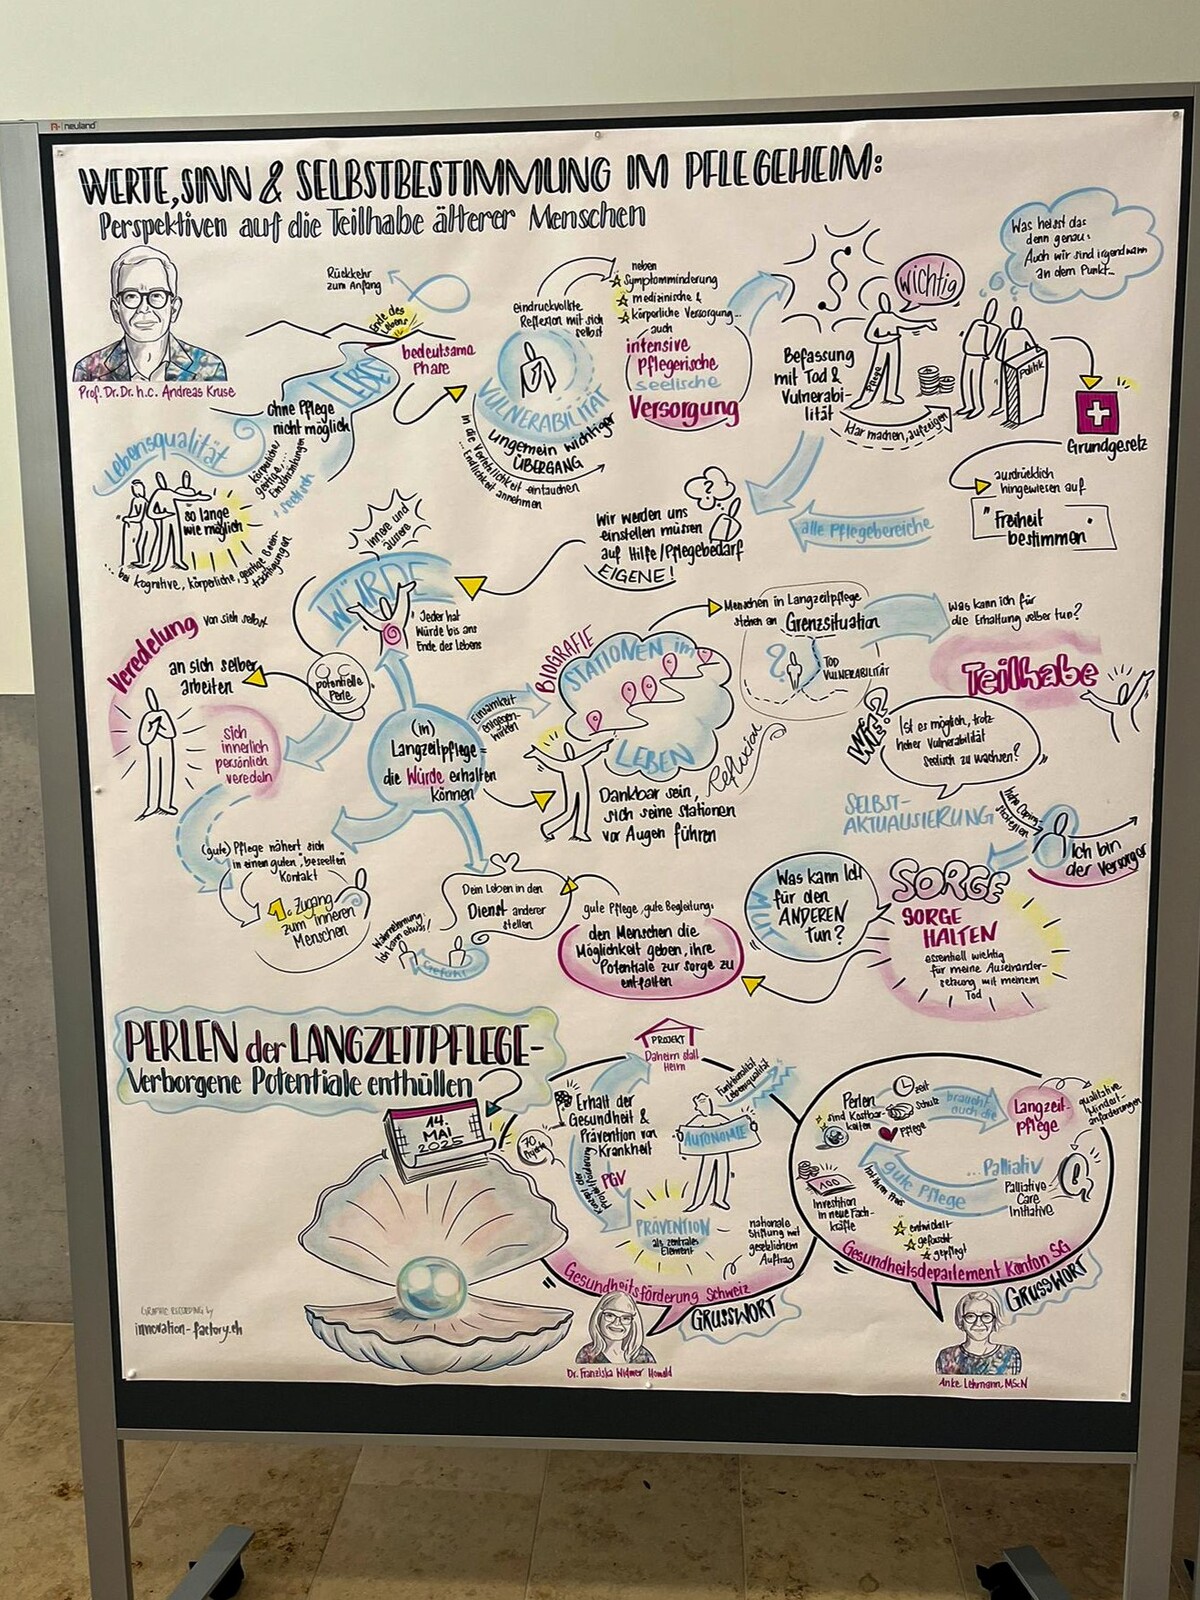 neuland
WERTE, SINN & SELBSTBESTIMMUNG IM PFLEGEHEIM:
Perspektiven auf die Teilhabe älterer Menschen
Prof. Dr. Dr. h.c. Andreas Kruse
Rückkehr
zum Anfang
Ende des
Lebens
LEBE
bedeutsame
Phase
ohne Pflege
nicht möglich
Lebensqualität
so lange
wie möglich
körperliche
geistige...
Einschränkungen
+ seelisch
... bei kognitive, körperliche, geistige Beein-
trächtigungen
eindrucksvollste
Reflexion mit sich
selbst
VULNERABILITÄT
ungemein wichtiger
ÜBERGANG
in die Verletzlichkeit eintauchen
... Endlichkeit annehmen
neben
Symptomminderung
medizinische &
körperliche Versorgung...
auch
intensive
pflegerische
seelische
Versorgung
§
Befassung
mit Tod &
Vulnerabi-
lität
wichtig
Pflege
Politik
klar machen, aufzeigen
Was heisst das
denn genau:
Auch wir sind irgendwann
an dem Punkt...
Grundgesetz
ausdrücklich
hingewiesen auf
"Freiheit
bestimmen
alle Pflegebereiche
?
Wir werden uns
einstellen müssen
auf Hilfe/Pflegebedarf
EIGENE!
innere und
äussere
WÜRDE
Jeder hat
Würde bis ans
Ende des Lebens
potentielle
Perle
Veredelung von sich selbst
an sich selber
arbeiten
sich
innerlich
persönlich
veredeln
(in)
Langzeitpflege
die Würde erhalten
können
Einsamkeit
entgegen-
wirken
BIOGRAFIE
STATIONEN im
LEBEN
Dankbar sein,
sich seine Stationen
vor Augen führen
Reflexion
Menschen in Langzeitpflege
stehen an Grenzsituation
?
TOD
VULNERABILITÄT
Was kann ich für
die Erhaltung selber tun?
Teilhabe
Ist es möglich, trotz
hoher Vulnerabilität
seelisch zu wachsen?
SELBST-
AKTUALISIERUNG
hohe Coping-
strategien
Ich bin
der Versorger
SORGE
SORGE
HALTEN
essentiell wichtig
für meine Auseinander-
setzung mit meinem
Tod
MUT
Was kann ich
für den
ANDEREN
tun?
gute Pflege, gute Begleitung:
den Menschen die
Möglichkeit geben, ihre
Potentiale zur Sorge zu
entfalten
Dein Leben in den
Dienst anderer
stellen
Wahrnehmung:
Ich kann etwas!
Gefühl
(gute) Pflege nähert sich
in einem guten, "beseelten"
Kontakt
1. Zugang
zum inneren
Menschen
PERLEN der LANGZEITPFLEGE-
Verborgene Potentiale enthüllen
14.
MAI
2025
PROJEKT
Daheim statt
Heim
Erhalt der
Gesundheit &
Prävention von
Krankheit
70
Projekte
PGV
PRÄVENTION
als zentrales
Element
AUTONOMIE
Funktionalität
Lebensqualität
nationale
Stiftung mit
gesetzlichem
Auftrag
Gesundheitsförderung Schweiz
GRUSSWORT
Dr. Franziska Widmer Howald
Perlen
sind Kostbar-
keiten
Zeit
Schutz
Pflege
braucht
auch die
Langzeit-
pflege
qualitative
Mindest-
anforderungen
...Palliativ
Palliative-
Care
Initiative
gute Pflege
hat ihren Preis
100
Investition
in neue Fach-
kräfte
entwickelt
gefordert
gepflegt
Gesundheitsdepartement Kanton SG
GRUSSWORT
Anke Lehmann, MScN
GRAPHIC RECORDING by
innovation-factory.ch